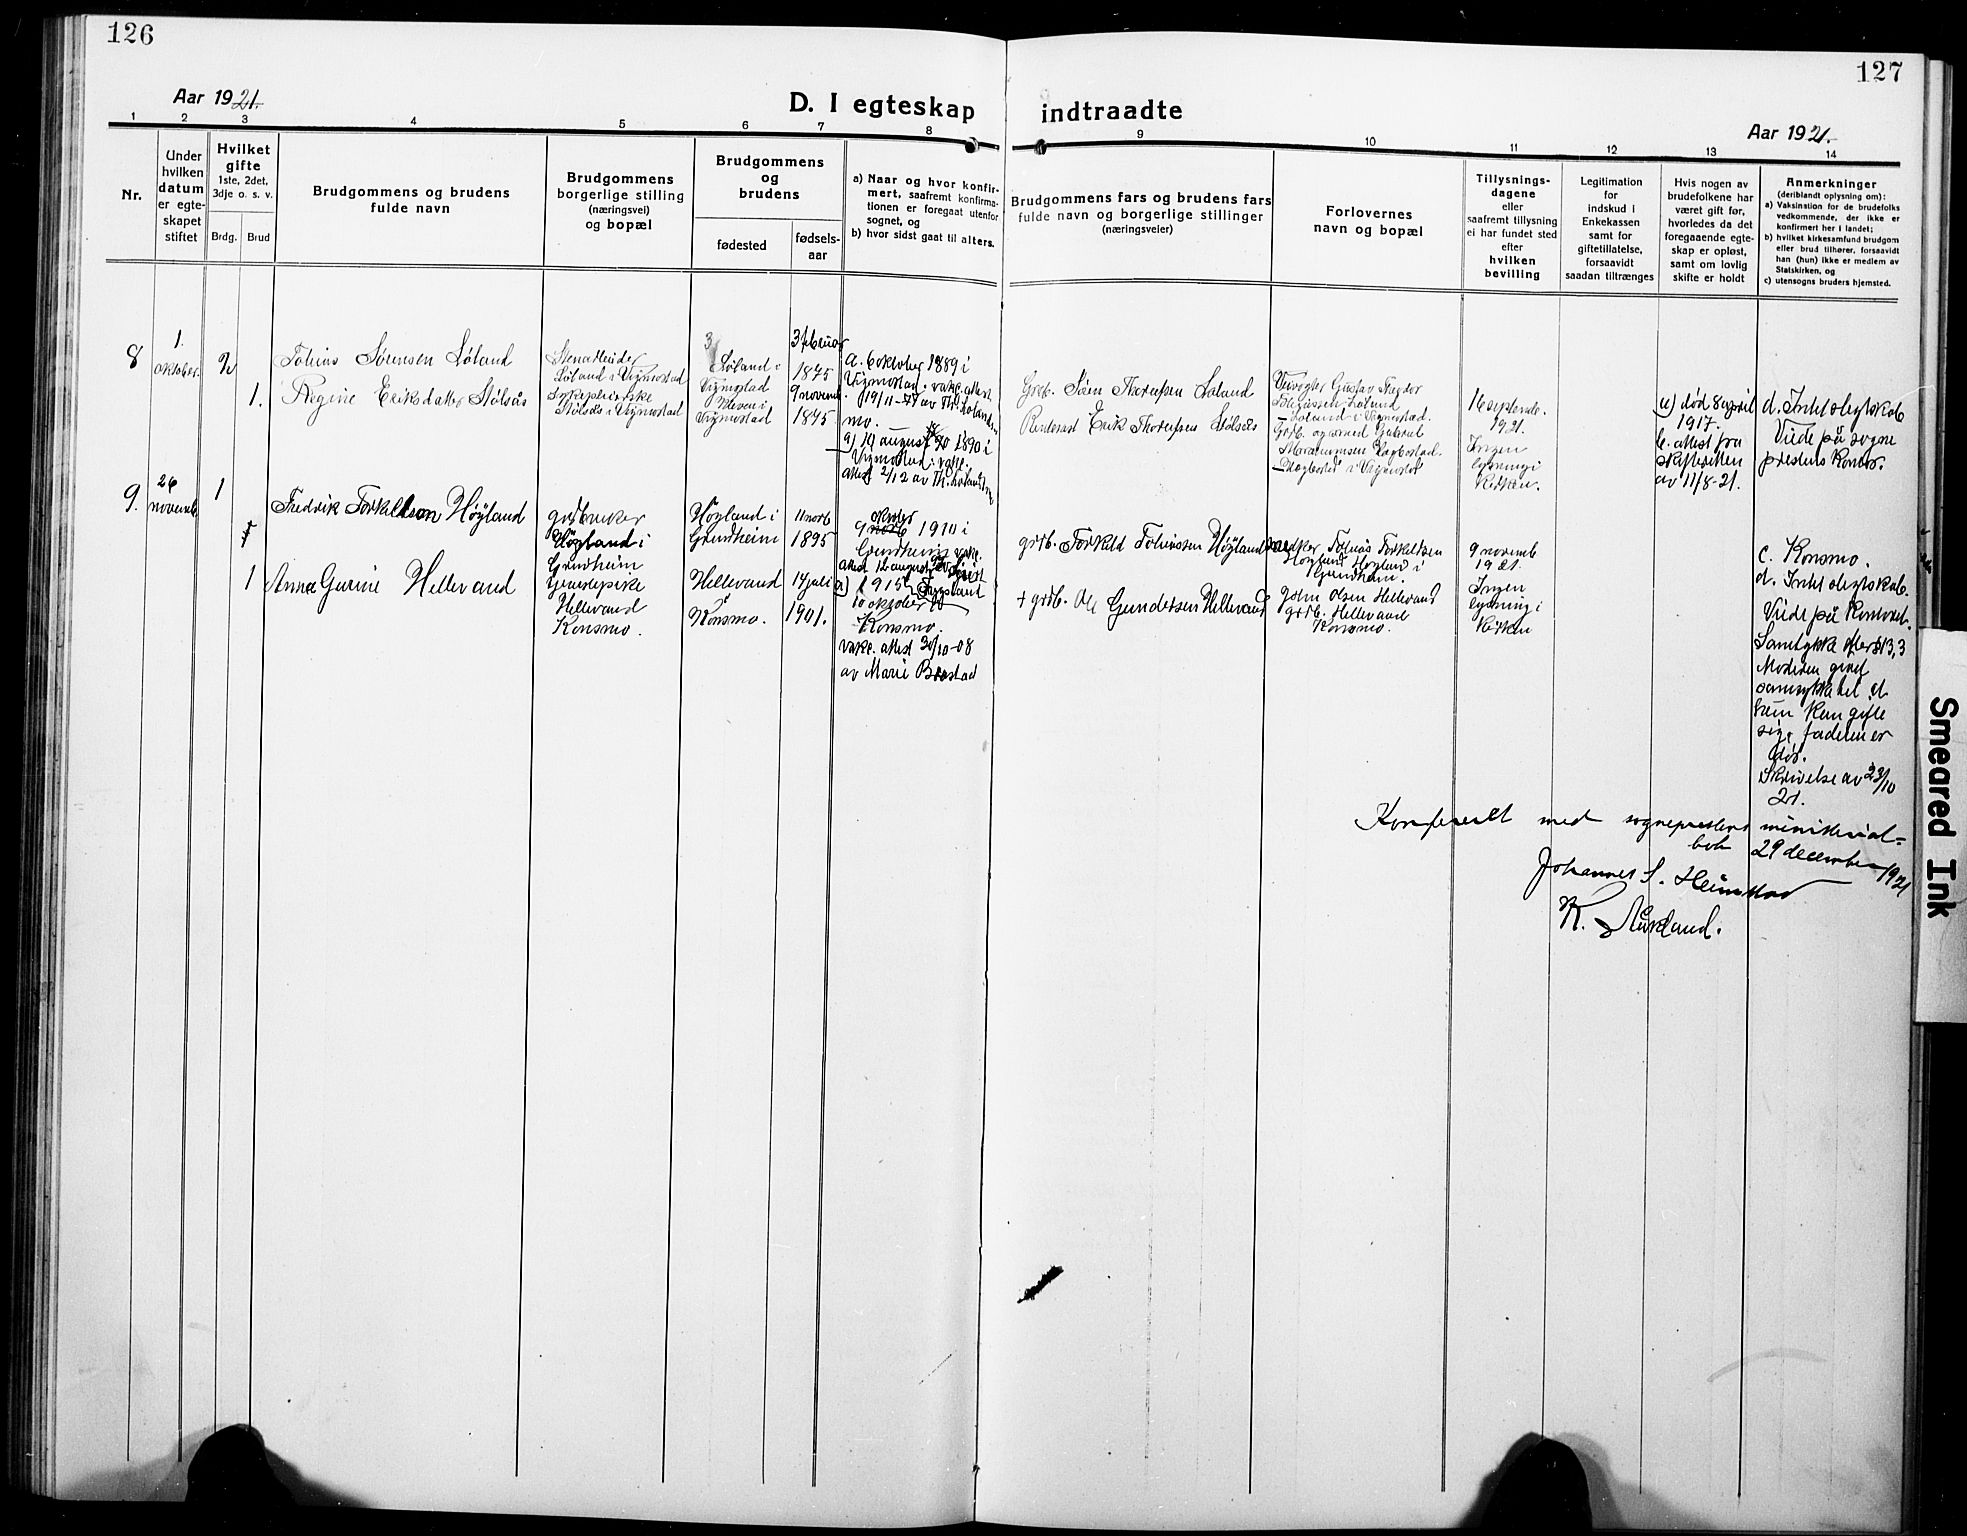 126
Aar 1921.
D. I egteskap
1
2
3
4
5
6
7
8
Nr.
Under
hvilken
datum
er egte-
skapet
stiftet
Hvilket
gifte
1ste, 2det,
3dje o. s. v.
Brdg.
Brud
Brudgommens og brudens
fulde navn
Brudgommens
borgerlige stilling
(næringsvei)
og bopæl
Brudgommens
og
brudens
fødested
fødsels-
aar
a) Naar og hvor konfir-
mert, saafremt konfirma-
tionen er foregaat utenfor
sognet, og
b) hvor sidst gaat til alters.
8
1.
oktober.
2
Tobias Sørensen Løland
Løland i Vigmostad
Løland i
Vigmostad
3 februar
1875
a. 6 oktober 1889 i
Vigmostad; vakc. attest
19/11-77 av Th. Loland
mo.
1.
Regine Eriksdatter Stølsås
Sykepleierske
Stølsås i Vigmostad
Meven i
Vigmostad
9 novemb
1875
a) 19 august 1890 i
Vigmostad; vakc.
attest 2/12 av Th. Loland
9.
26
novemb.
1
Fredrik Torkeldsen Høyland
gårdbruker
Høyland i
Grindheim
Høyland i
Grindheim
11 novb
1895
oktober
9 novb 1910 i
Grindheim vakc.
attest 12 august
1
Anna Gurine Hellevand
Hellevand
Konsmo.
Hellevand
Konsmo.
17 juli
1901.
a) 1915
10 oktober
Konsmo.
vakc. attest 30/10-08
av Marie Brastad
127
indtraadte
Aar 1921.
9
10
11
12
13
14
Brudgommens fars og brudens fars
fulde navn og borgerlige stillinger
(næringsveier)
Forlovernes
navn og bopæl
Tillysnings-
dagene
eller
saafremt tillysning
ei har fundet sted
efter
hvilken
bevilling
Legitimation
for
indskud i
Enkekassen
samt for
giftetillatelse,
forsaavidt
saadan tiltrænges
Hvis nogen av
brudefolkene har
været gift før,
hvorledes da det
foregaaende egte-
skap er opløst,
samt om lovlig
skifte er holdt
Anmerkninger
(deriblandt oplysning om):
a) Vaksination for de brudefolks
vedkommende, der ikke er
konfirmert her i landet;
b) hvilket kirkesamfund brudgom
eller brud tilhører, forsaavidt
han (hun) ikke er medlem av
Statskirken, og
c) utensogns bruders hjemsted.
Grdb. Søren Thorufsen Løland
Veivogter Gustav Teodor
Tobiassen Løland
Løland i Vigmostad.
Erik Thorufsen Stølsås
Grdb.
Vigmostad
16 septemb.
1921.
Ingen
lysning i
kirken.
a) død 8 april
1917.
b. attest fra
skifteretten
av 11/8-21.
d. Intet slegtskab
Viede på sogne
prestens kontor.
grdb. Torkeld Tobiassen Høyland
Tobias Torkeldsen
Høyland Høyland i
Grindheim.
9 novemb
1921.
Ingen
lysning i
kirken
+ grdb. Ole Gundersen Hellevand
John Olsen Hellevand
grdb. Hellevand
Konsmo.
c. Konsmo.
d. Intet slegtskab.
Viede på kontoret.
Samtykke efter § 13, 3
Moderen givet
samtykke til at
hun kan gifte
sig, faderen er
død.
Skrivelse av 23/10
21.
Konfereret med sogneprestens ministerial-
bok 29 december 1921
Johannes S. Heimstad
K. Aurland.
Smeared Ink